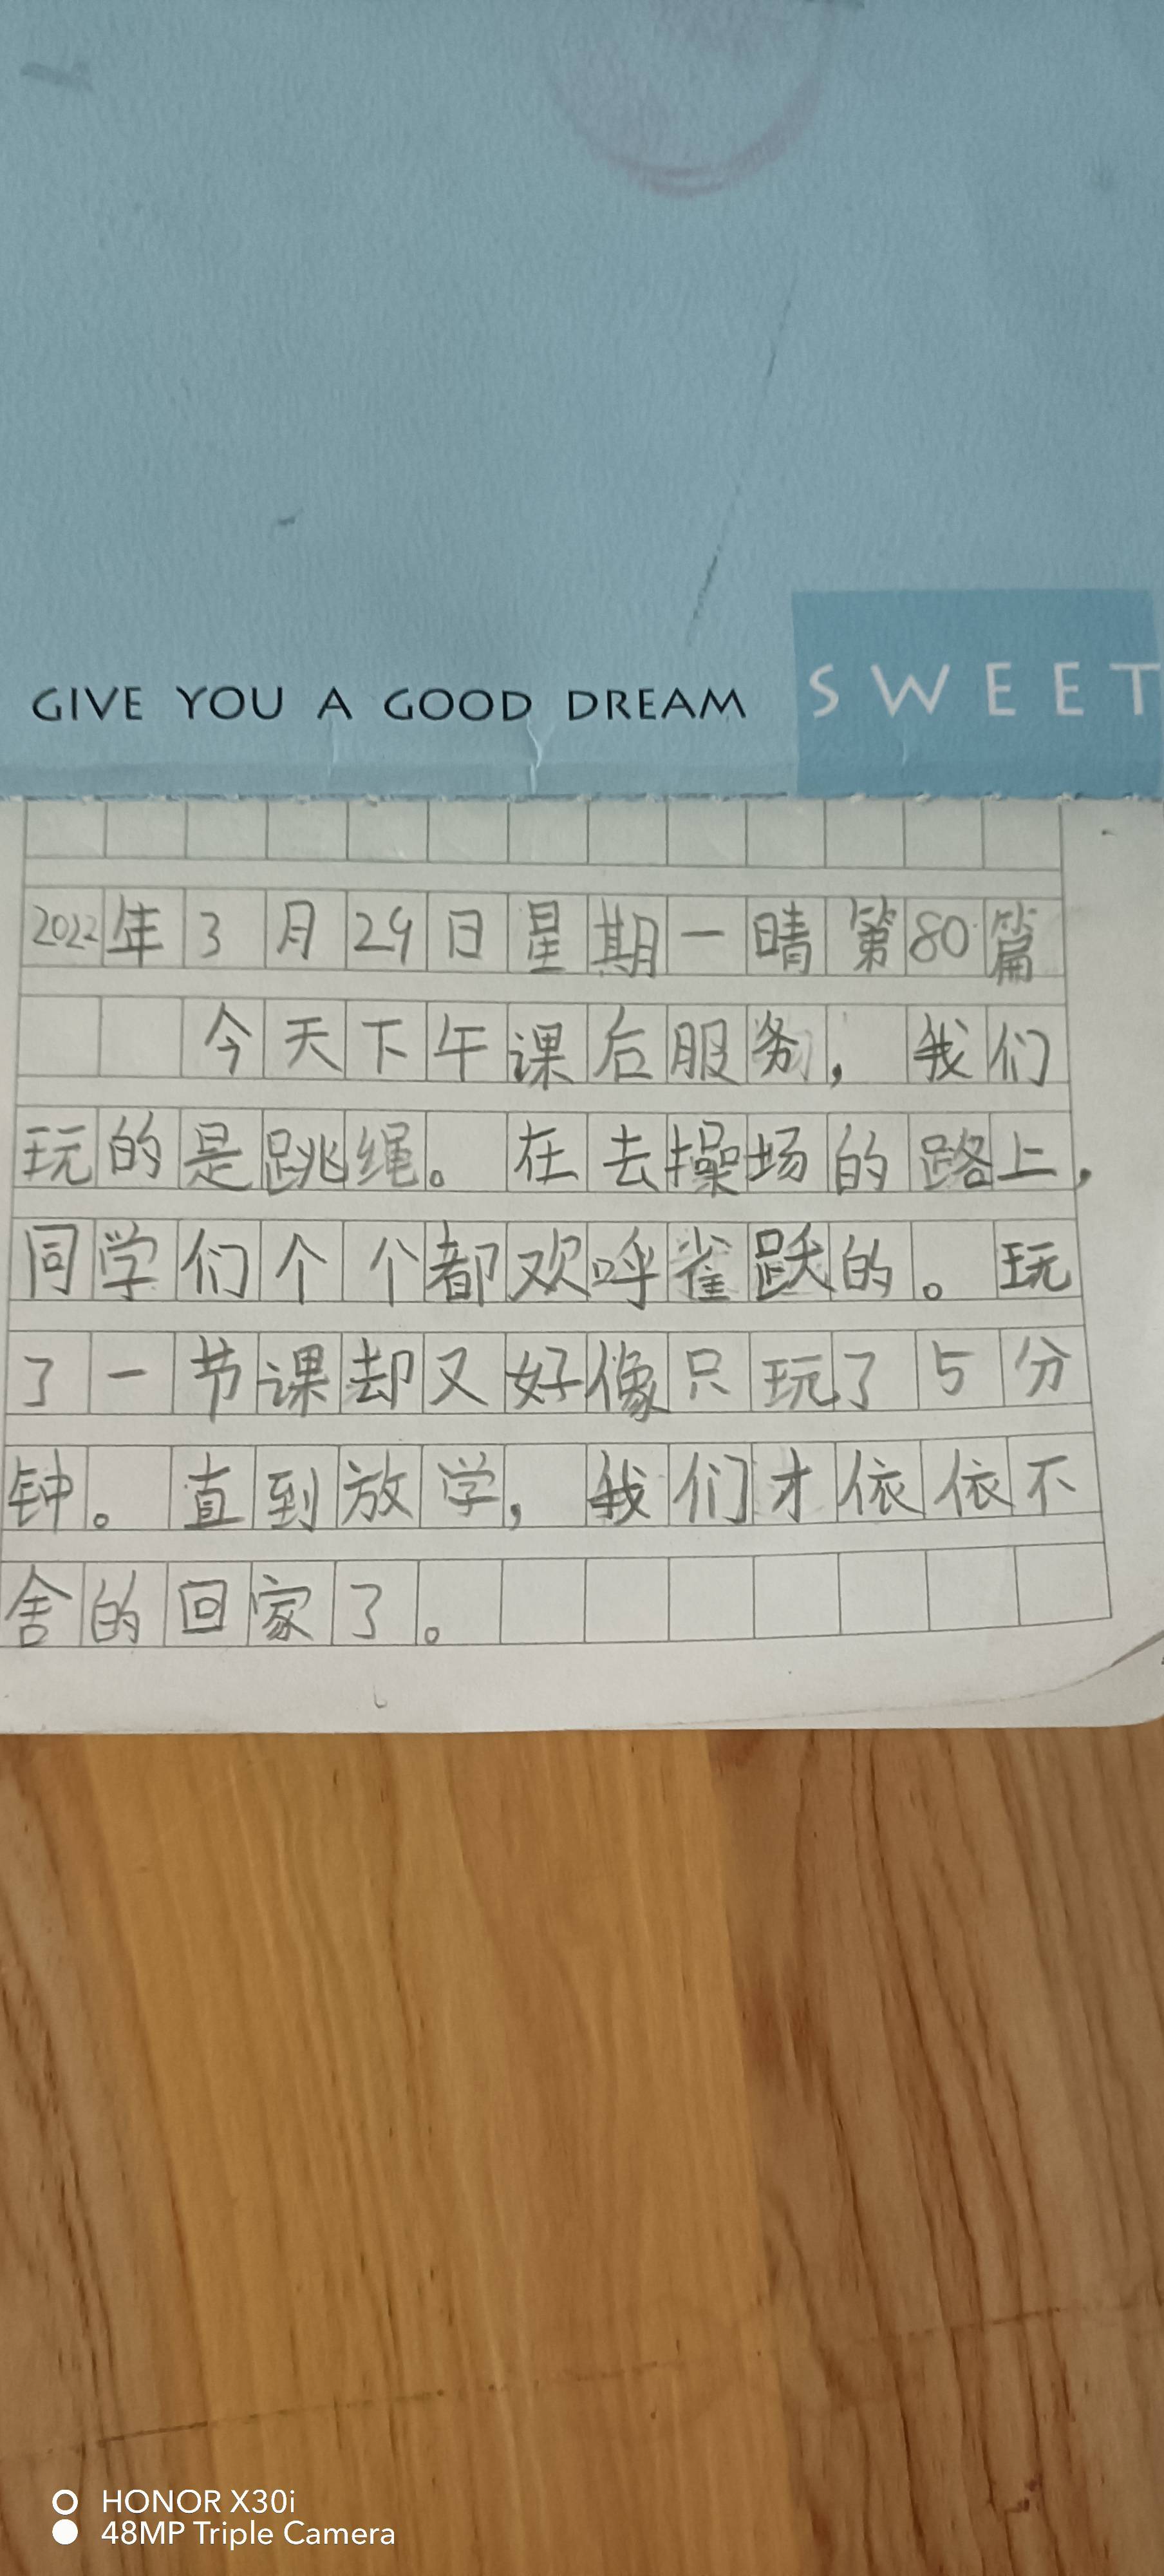 GIVE YOU A GOOD DREAM SWEET
2022年3月29日星期一晴第80篇
今天下午课后服务，我们
玩的是跳绳。在去操场的路上，
同学们个个都欢呼雀跃的。玩
了一节课却又好像只玩了5分
钟。直到放学，我们才依依不
舍的回家了。
HONOR X30i
48MP Triple Camera